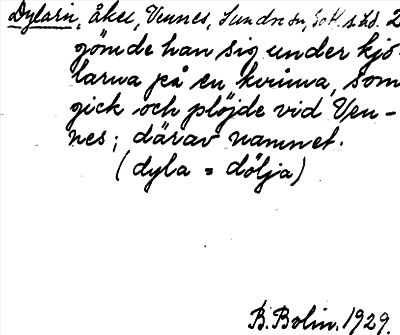 Dylarn, åker, Vennes, Sundre sn, Gotl. s. 2
gömde han sig under kjo-
larna på en kvinna, som
gick och plöjde vid Ven-
nes; därav namnet.
(dyla = dölja)
B. Bolin. 1929.